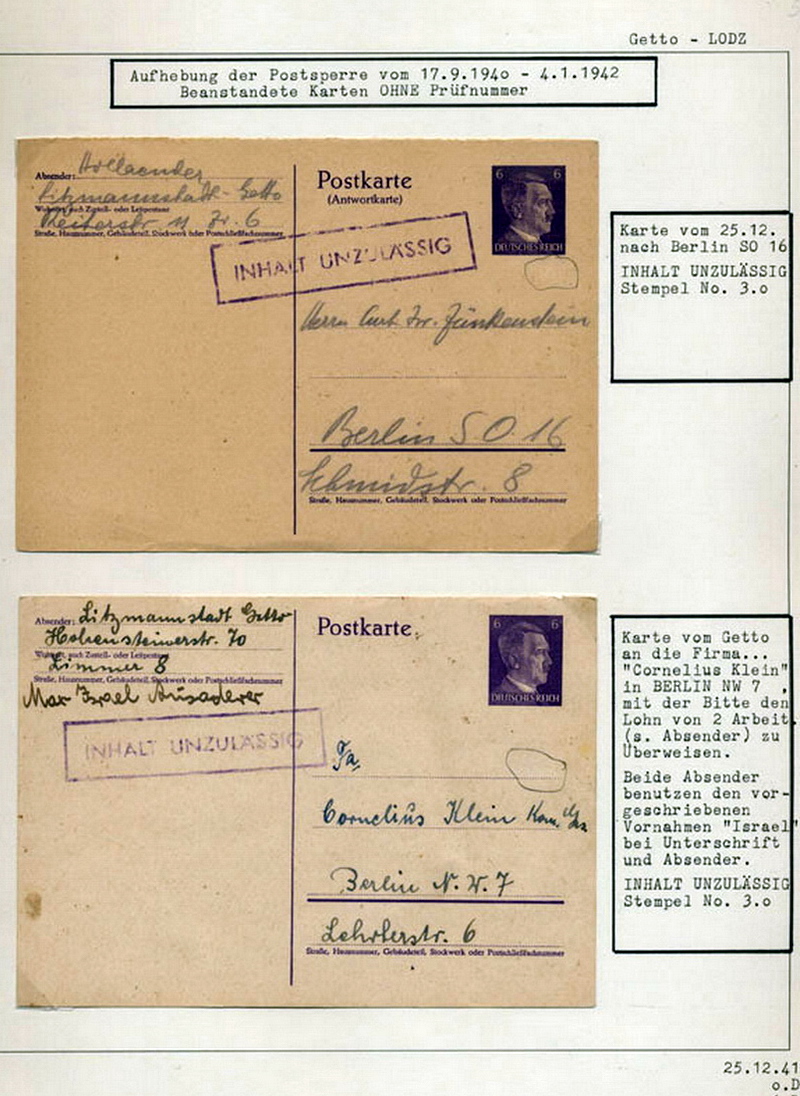 Getto - LODZ
Aufhebung der Postsperre vom 17.9.194o - 4.1.1942
Beanstandete Karten OHNE Prüfnummer
Absender: Hollaender
Litzmannstadt- Getto
Wohnort, auch Zustell- oder Leitpostamt
11 Zr. 6
Straße, Hausnummer, Gebäudeteil, Stockwerk oder Postschließfachnummer
Postkarte
(Antwortkarte)
6 6
DEUTSCHES REICH
INHALT UNZULÄSSIG
Herrn Curt Isr. Funkenstein
Berlin SO. 16
Schmidstr. 8
Straße, Hausnummer, Gebäudeteil, Stockwerk oder Postschließfachnummer
Karte vom 25.12.
nach Berlin SO 16
INHALT UNZULÄSSIG
Stempel No. 3.o
Absender: Litzmannstadt Getto
Hohensteinerstr. 70
Wohnort, auch Zustell- oder Leitpostamt
Zimmer 8
Straße, Hausnummer, Gebäudeteil, Stockwerk oder Postschließfachnummer
Max Israel
Postkarte
6 6
DEUTSCHES REICH
INHALT UNZULÄSSIG
Fa.
Cornelius Klein Kom. Ges
Berlin N.W. 7
Lehrterstr. 6
Straße, Hausnummer, Gebäudeteil, Stockwerk oder Postschließfachnummer
Karte vom Getto
an die Firma...
"Cornelius Klein"
in BERLIN NW 7 ,
mit der Bitte den
Lohn von 2 Arbeit
(s. Absender) zu
Überweisen.
Beide Absender
benutzen den vor-
geschriebenen
Vornahmen "Israel"
bei Unterschrift
und Absender.
INHALT UNZULÄSSIG
Stempel No. 3.o
25.12.41
o.D